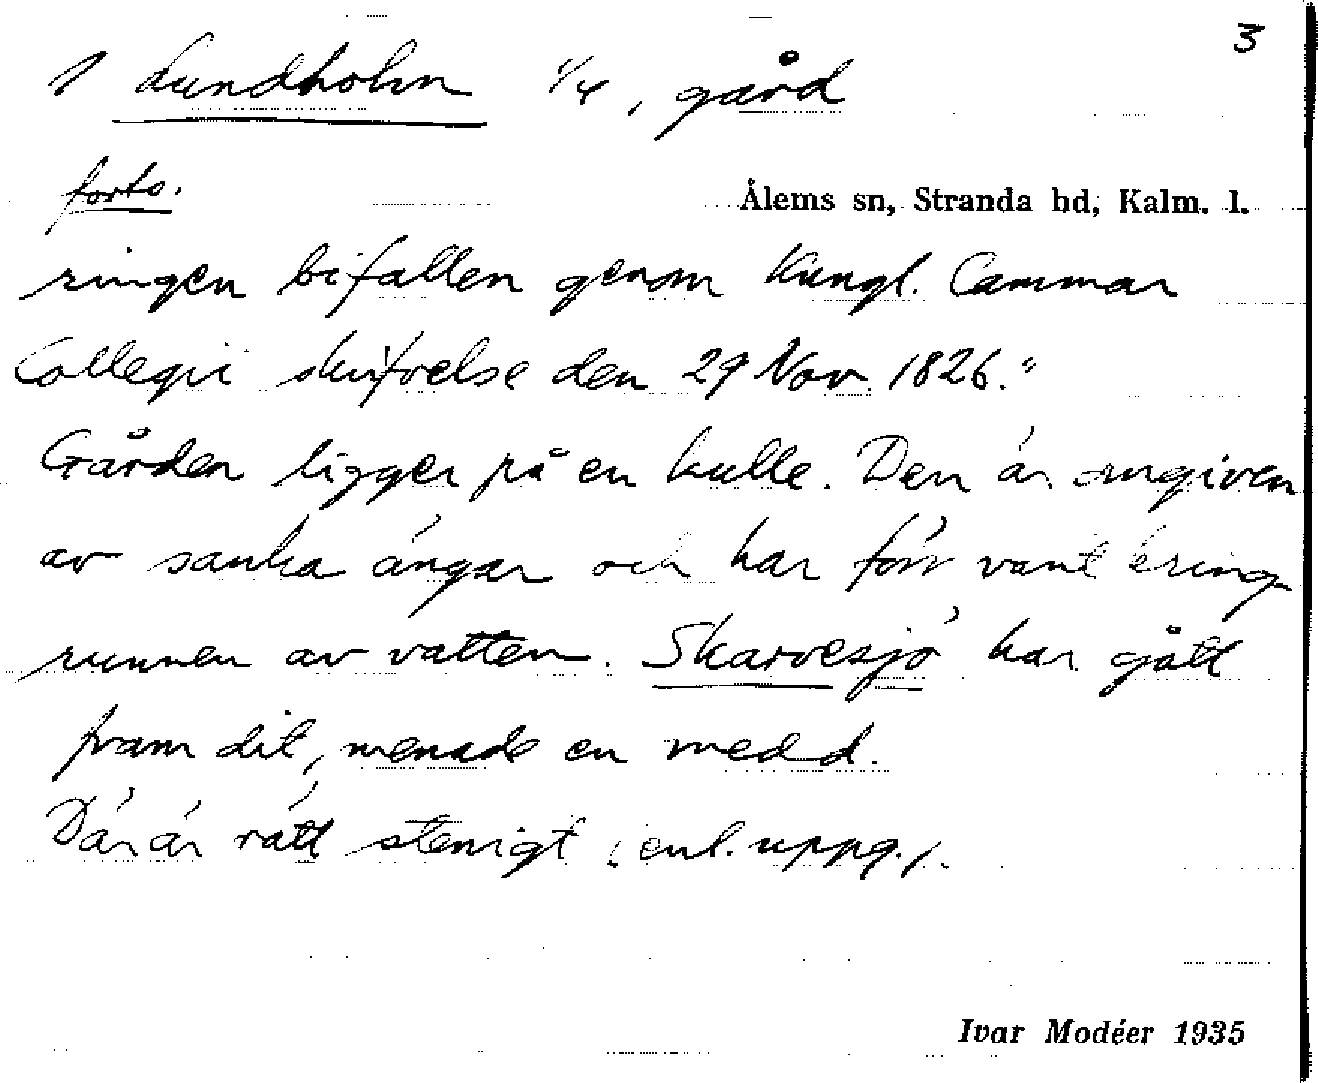 3
1 Lundholm 1/4, gård
forts.
Ålems sn, Stranda hd, Kalm. l.
ringen bifallen genom Kungl. Cammar
Collegii skrifvelse den 29 Nov. 1826."
Gården ligger på en kulle. Den är omgiven
av sanka ängar och har förr varit kring-
runnen av vatten. Skarvesjö har gått
fram dit, menade en medd.
Där är rätt stenigt (enl. uppg.).
Ivar Modéer 1935